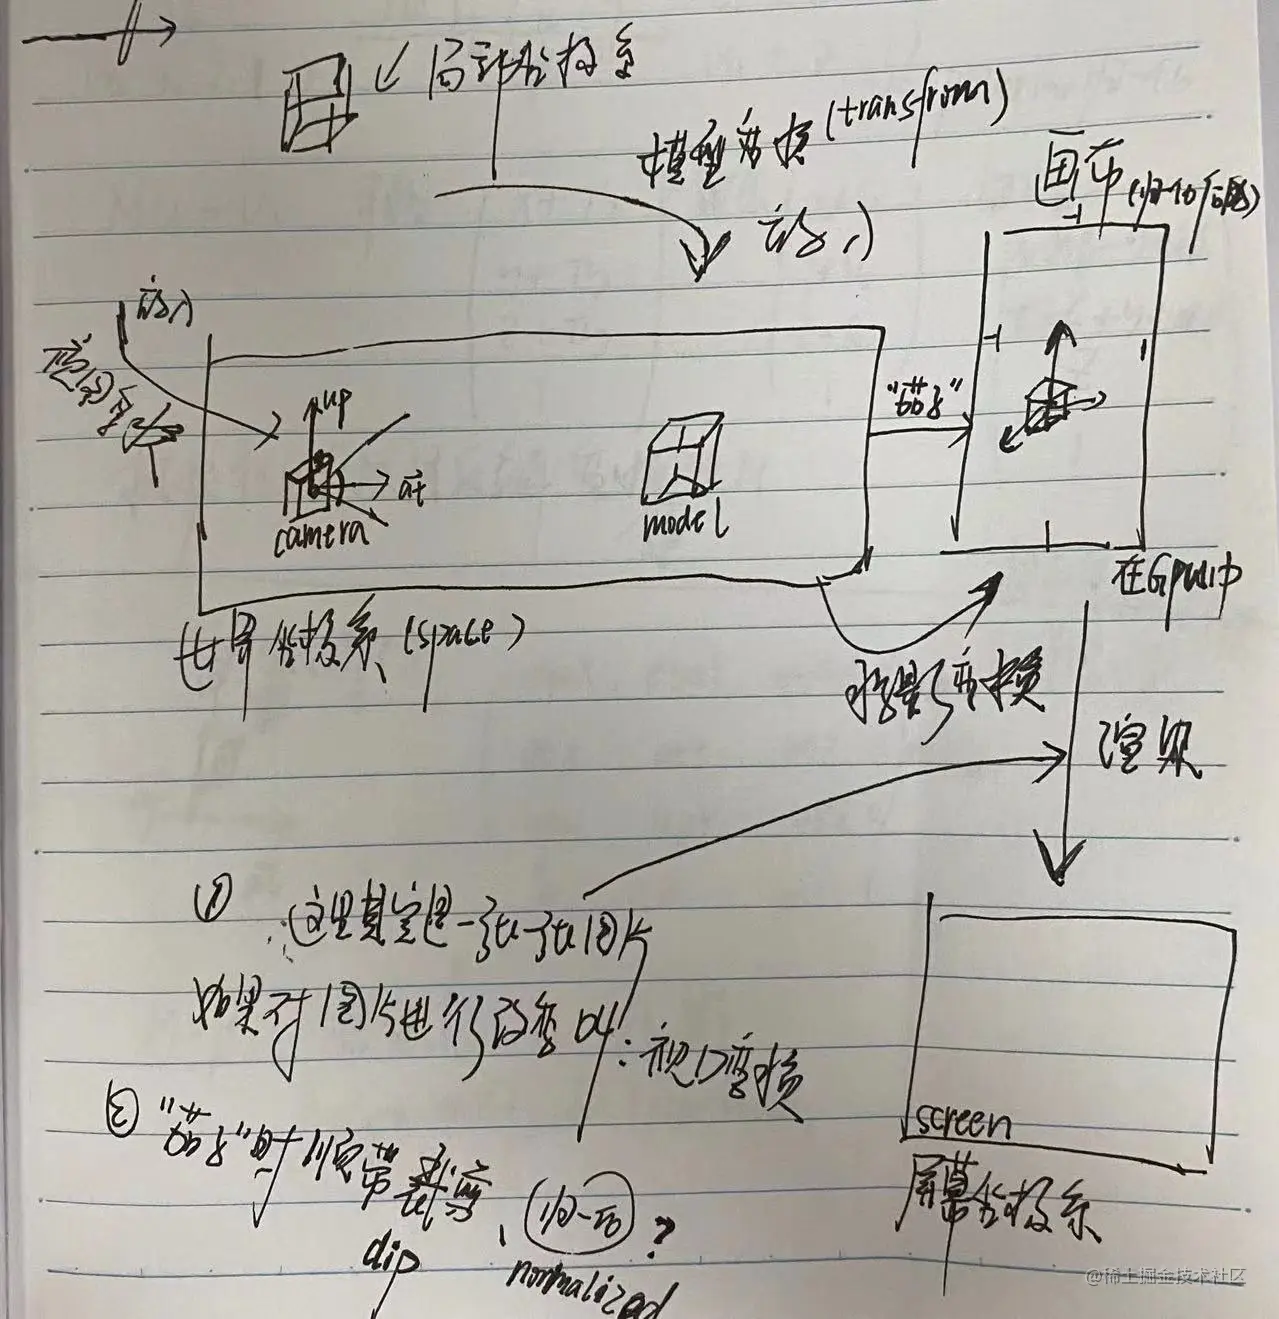 局部坐标系
模型变换(transfrom)
画布(归一化后的)
放入
放入
up
at
camera
model
"拍摄"
在Gpu中
世界坐标系(space)
投影变换
渲染
①
这里其实是一张一张图片
如果对图片进行改变 04:视口变换
screen
屏幕坐标系
"拍摄"时顺带裁剪
归一化?
normalized
@稀土掘金技术社区